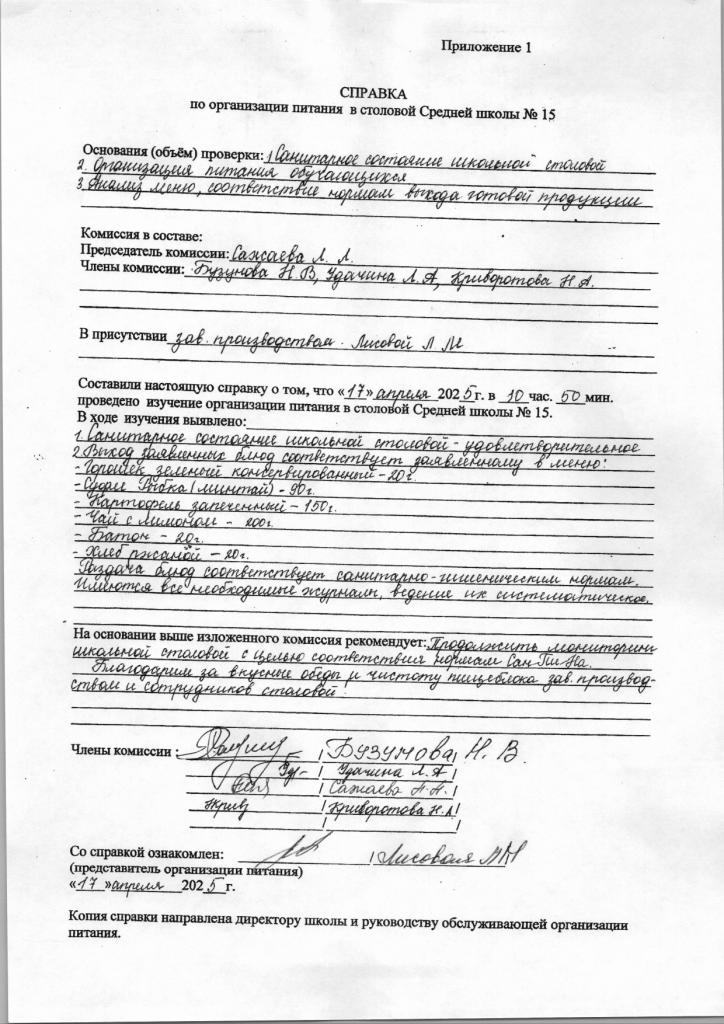 Приложение 1
СПРАВКА
по организации питания в столовой Средней школы № 15
Основания (объём) проверки: 1 Санитарное состояние школьной столовой
2. Организация питания обучающихся
3. Анализ меню, соответствие нормам выхода готовой продукции
Комиссия в составе:
Председатель комиссии: Сажаева Л. Л.
Члены комиссии: Бузунова Н. В, Удачина Л. А, Криворотова Н. А.
В присутствии зав. производством. Лисовой Л М
Составили настоящую справку о том, что «17» апреля 2025 г. в 10 час. 50 мин.
проведено изучение организации питания в столовой Средней школы № 15.
В ходе изучения выявлено:
1. Санитарное состояние школьной столовой - удовлетворительное
2. Выход заявленных блюд соответствует заявленному в меню:
- Горошек зеленый консервированный - 20г.
- Суфле Рыбка (минтай) - 90г.
- Картофель запеченный - 150г.
- Чай с лимоном - 200г
- Батон - 20г.
- Хлеб ржаной - 20г.
Раздача блюд соответствует санитарно-гигиеническим нормам.
Имеются все необходимые журналы, ведение их систематическое.
На основании выше изложенного комиссия рекомендует: Продолжить мониторинг
школьной столовой с целью соответствия нормам СанПиНа.
Благодарим за вкусные обеды и чистоту пищеблока зав. производ-
ством и сотрудников столовой.
Члены комиссии : / Бузунова / Н. В.
Уду- / Удачина Л. А /
/ Сажаева /
Крив / Криворотова Н. А /
Со справкой ознакомлен: / Лисовая
(представитель организации питания)
«17» апреля 2025 г.
Копия справки направлена директору школы и руководству обслуживающей организации
питания.